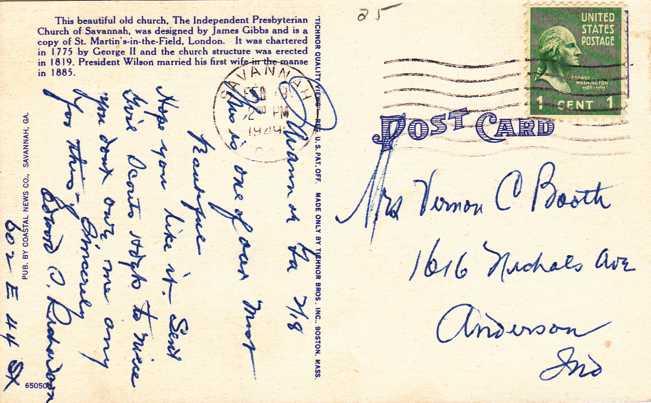 25
This beautiful old church, The Independent Presbyterian
Church of Savannah, was designed by James Gibbs and is a
copy of St. Martin's-in-the-Field, London. It was chartered
in 1775 by George II and the church structure was erected
in 1819. President Wilson married his first wife in the manse
in 1885.
Savannah Ga 2/18
This is one of our most
beautiful
Hope you like it. Send
Girl Scouts to niece
you don't owe me any
for this - Sincerely
Edward O.
602 E 44 St
PUB. BY COASTAL NEWS CO., SAVANNAH, GA.
65050
"TICHNOR QUALITY VIEWS," REG. U. S. PAT. OFF. MADE ONLY BY TICHNOR BROS., INC., BOSTON, MASS.
SAVANNAH
FEB
PM
1949
UNITED
STATES
POSTAGE
1 CENT 1
POST CARD
Mrs Vernon C Booth
1616 Nichols Ave
Anderson
Ind